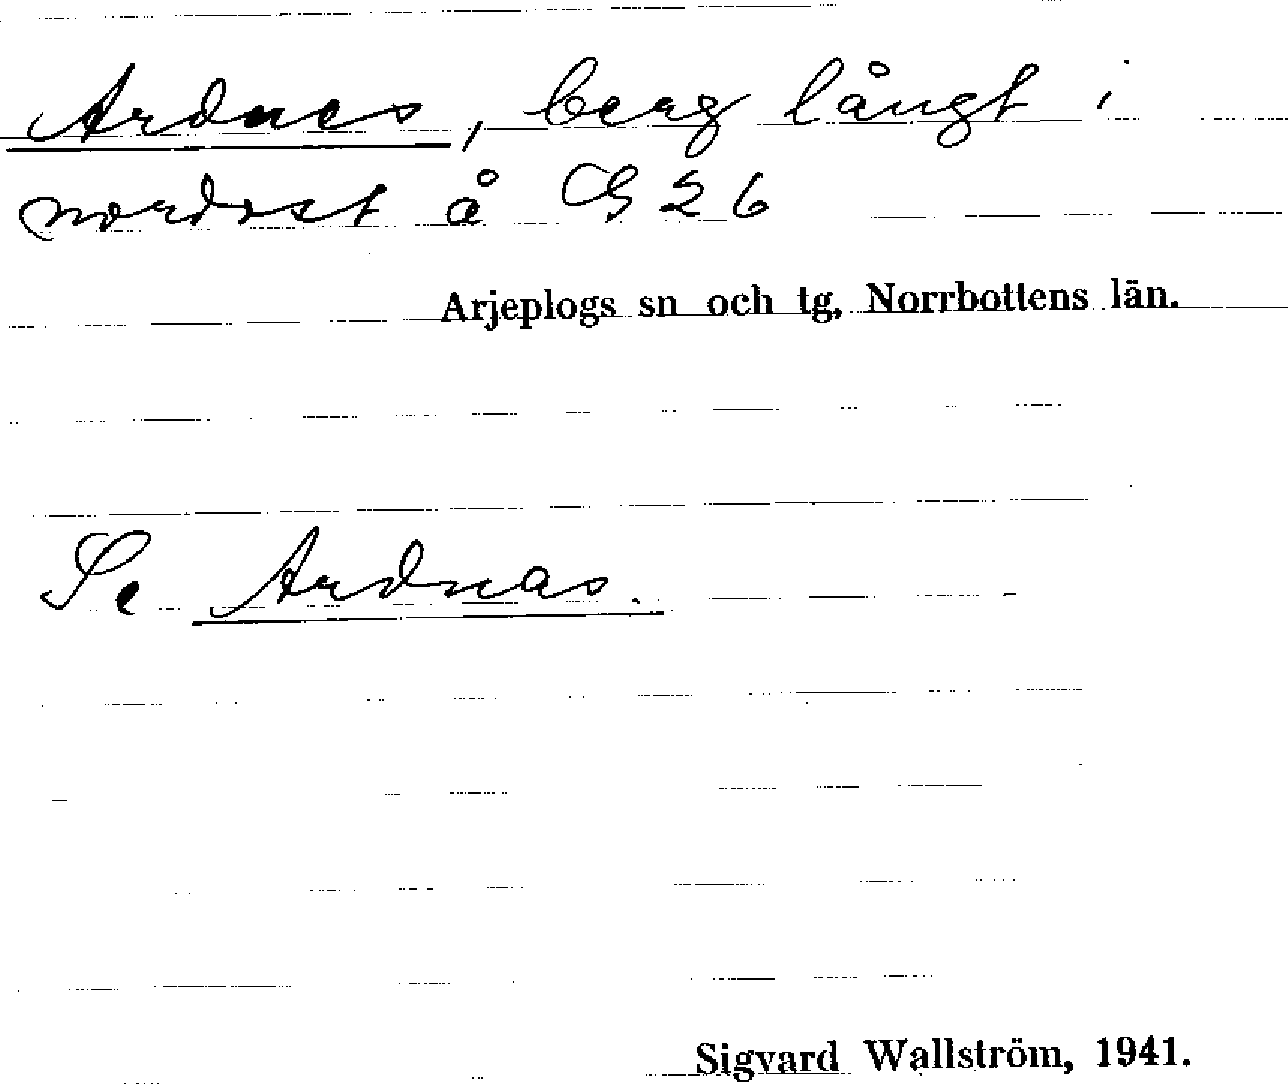 Ardnes, berg långt i
nordost å G 26
Arjeplogs sn och tg, Norrbottens län.
Se Ardnas.
Sigvard Wallström, 1941.